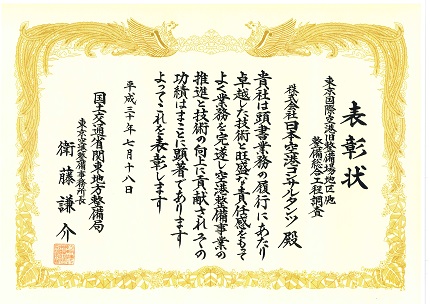 表彰状
東京国際空港旧整備場地区他
整備総合工程調査
株式会社日本空港コンサルタンツ 殿
貴社は頭書業務の履行にあたり
卓越した技術と旺盛な責任感をもって
よく業務を完遂し空港整備事業の
推進と技術の向上に貢献されその
功績はまことに顕著であります
よってこれを表彰します
平成三十年七月十八日
国土交通省関東地方整備局
東京空港整備事務所長
衛藤謙介